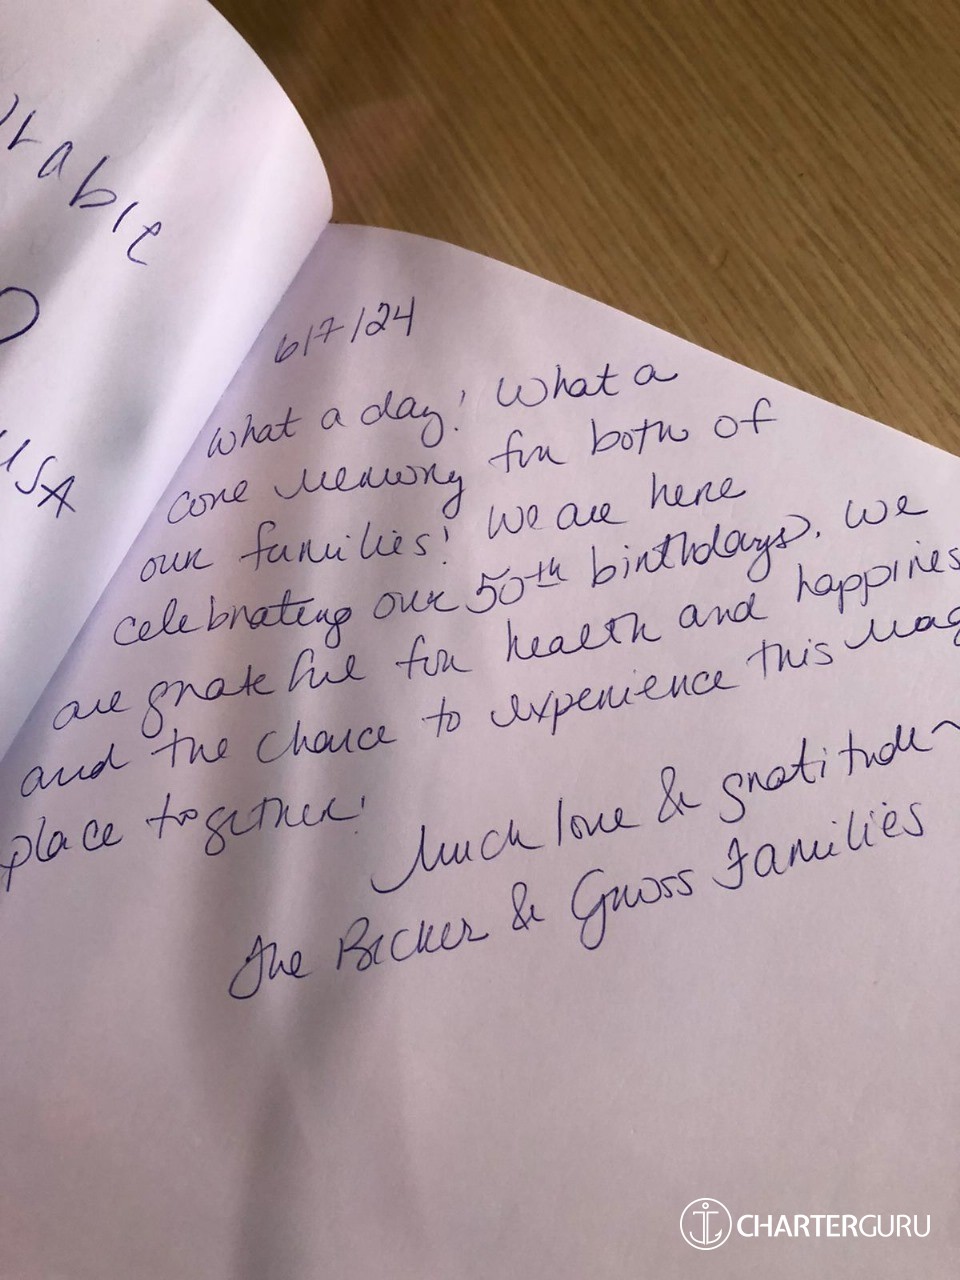 rable
USA
6/7/24
What a day! What a
core memory for both of
our families! We are here
celebrating our 50th birthdays. We
are grateful for health and happines
and the chance to experience this mag
place together!
Much love & gratitude~
The Becker & Gross Families
CHARTERGURU